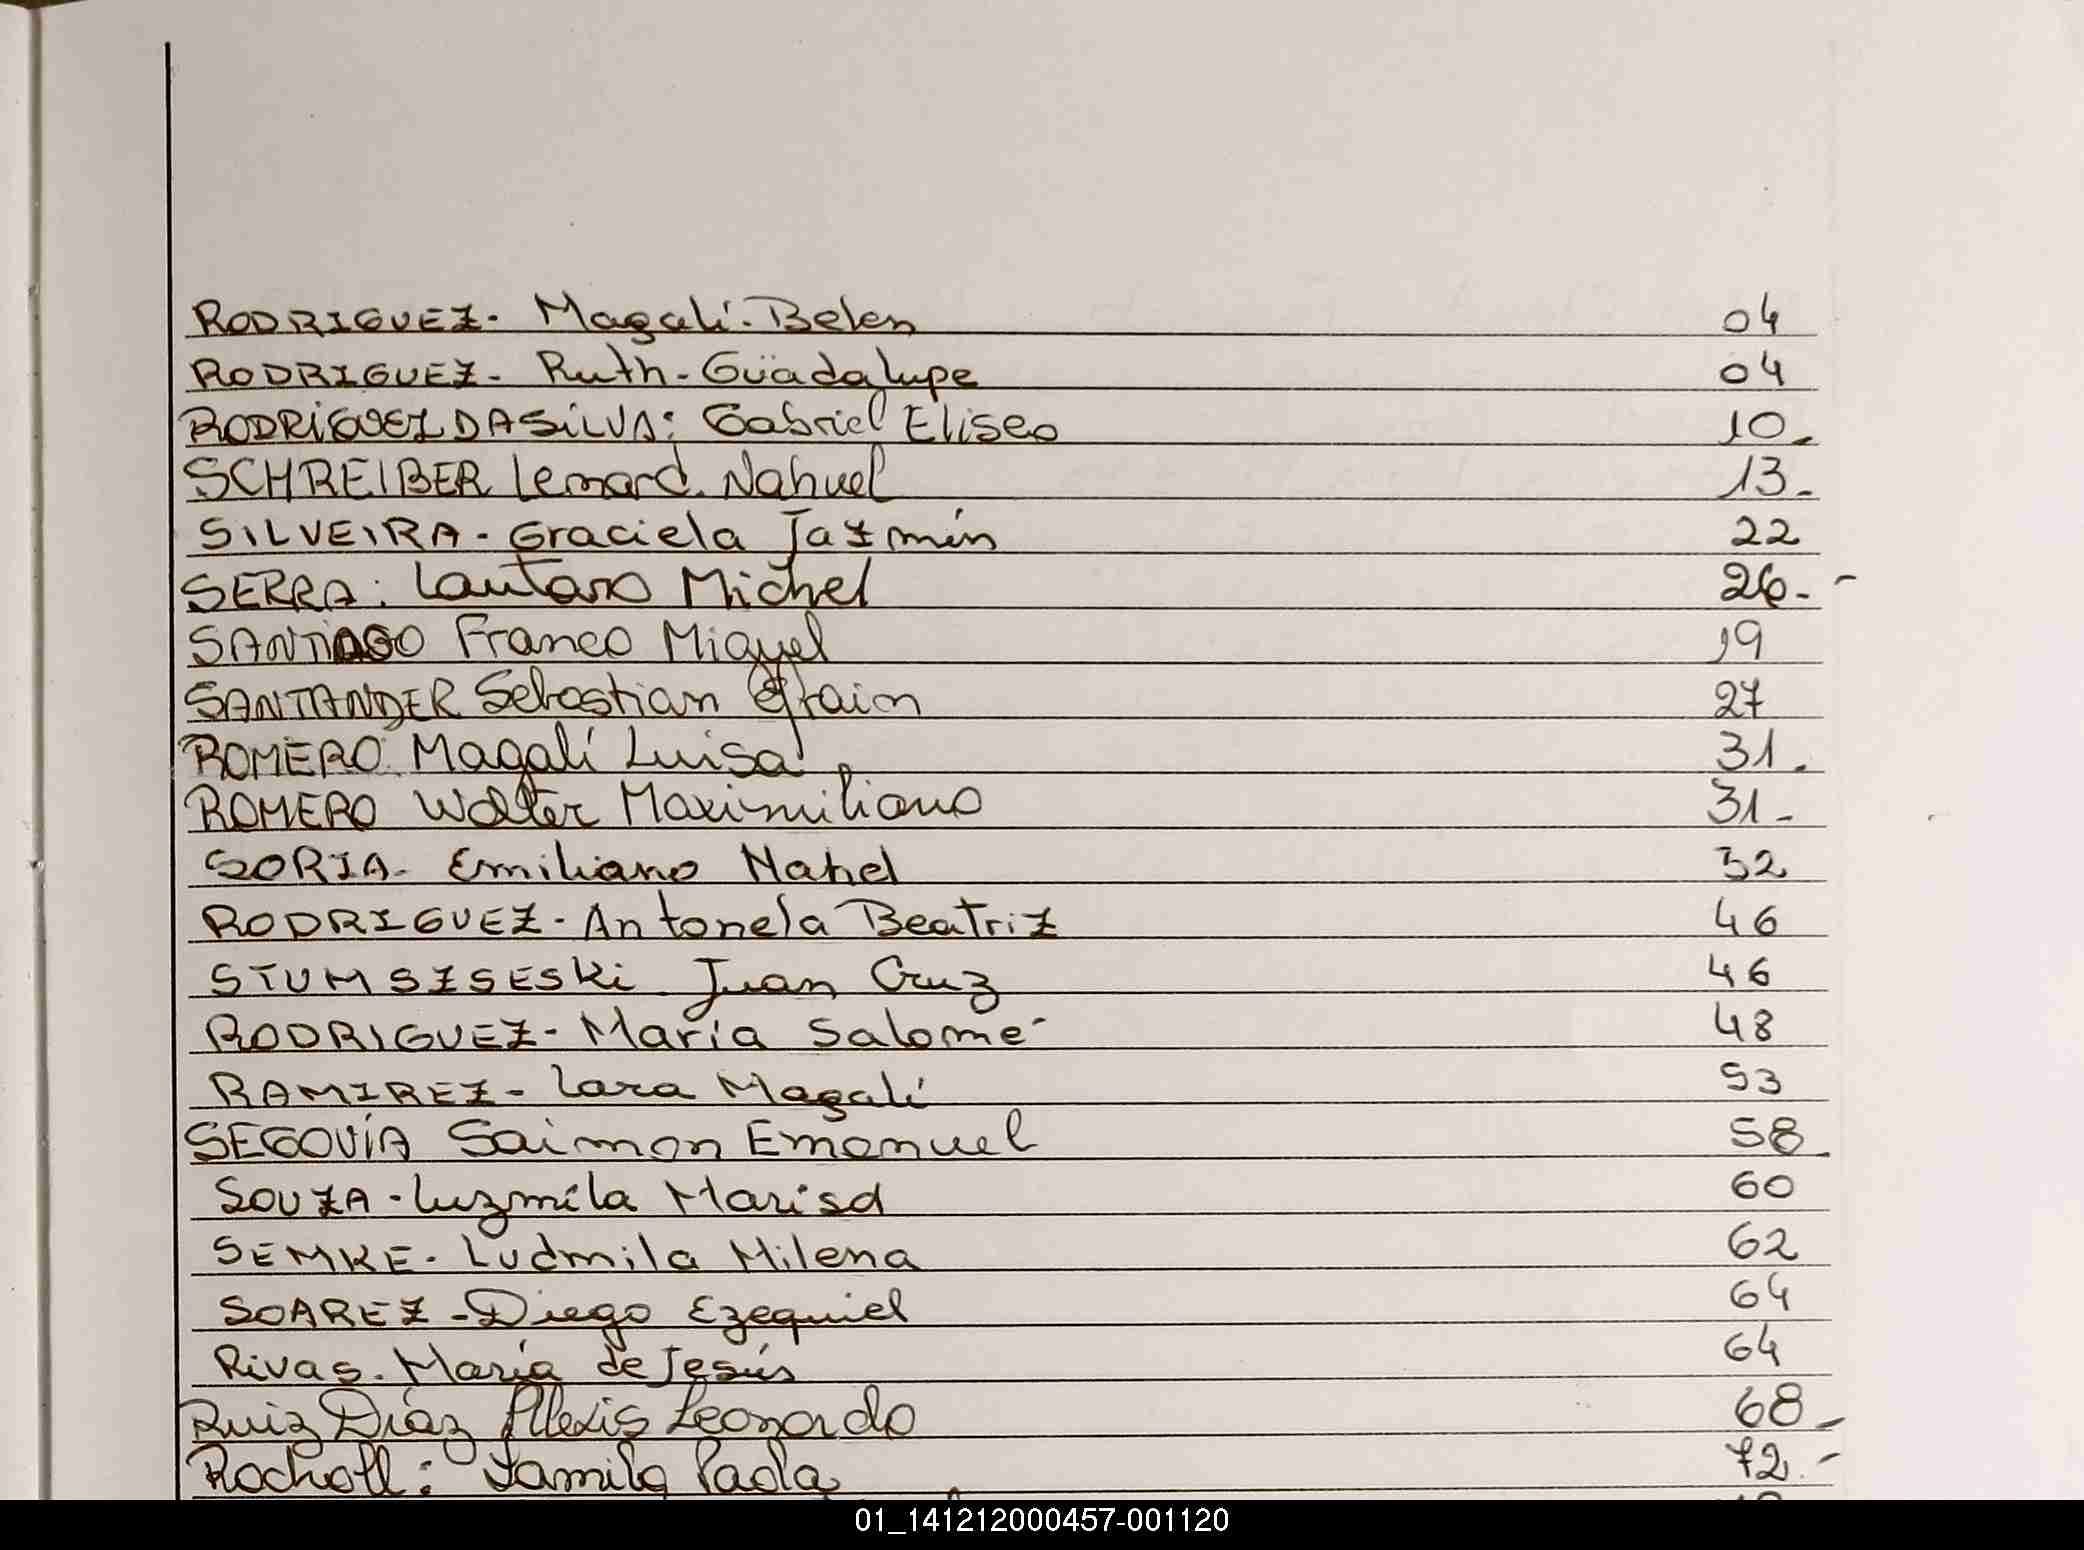 RODRIGUEZ- Magalí-Belen 04
RODRIGUEZ- Ruth-Güadalupe 04
RODRÍGUEZ DA SILVA: Gabriel Eliseo 10-
SCHREIBER Lenard. Nahuel 13-
SILVEIRA- Graciela Jazmín 22
SERRA: Lautaro Michel 26--
SANTIAGO Franco Miguel 19
SANTANDER Sebastian Efrain 27
ROMERO Magalí Luisa 31.
ROMERO Walter Maximiliano 31-
SORIA- Emiliano Nahel 32
RODRIGUEZ-Antonela Beatriz 46
STUMSZSESKi Juan Cruz 46
RODRIGUEZ-María Salomé 48
RAMIREZ- Lara Magalí 53
SEGOVÍA Saimon Emanuel 58.
SOUZA-Luzmila Marisa 60
SEMKE- Ludmila Milena 62
SOAREZ-Diego Ezequiel 64
Rivas- María de Jesús 64
Ruiz Díaz Alexis Leonardo 68-
Rocholl: Yamila Paola 72.-
01_141212000457-001120